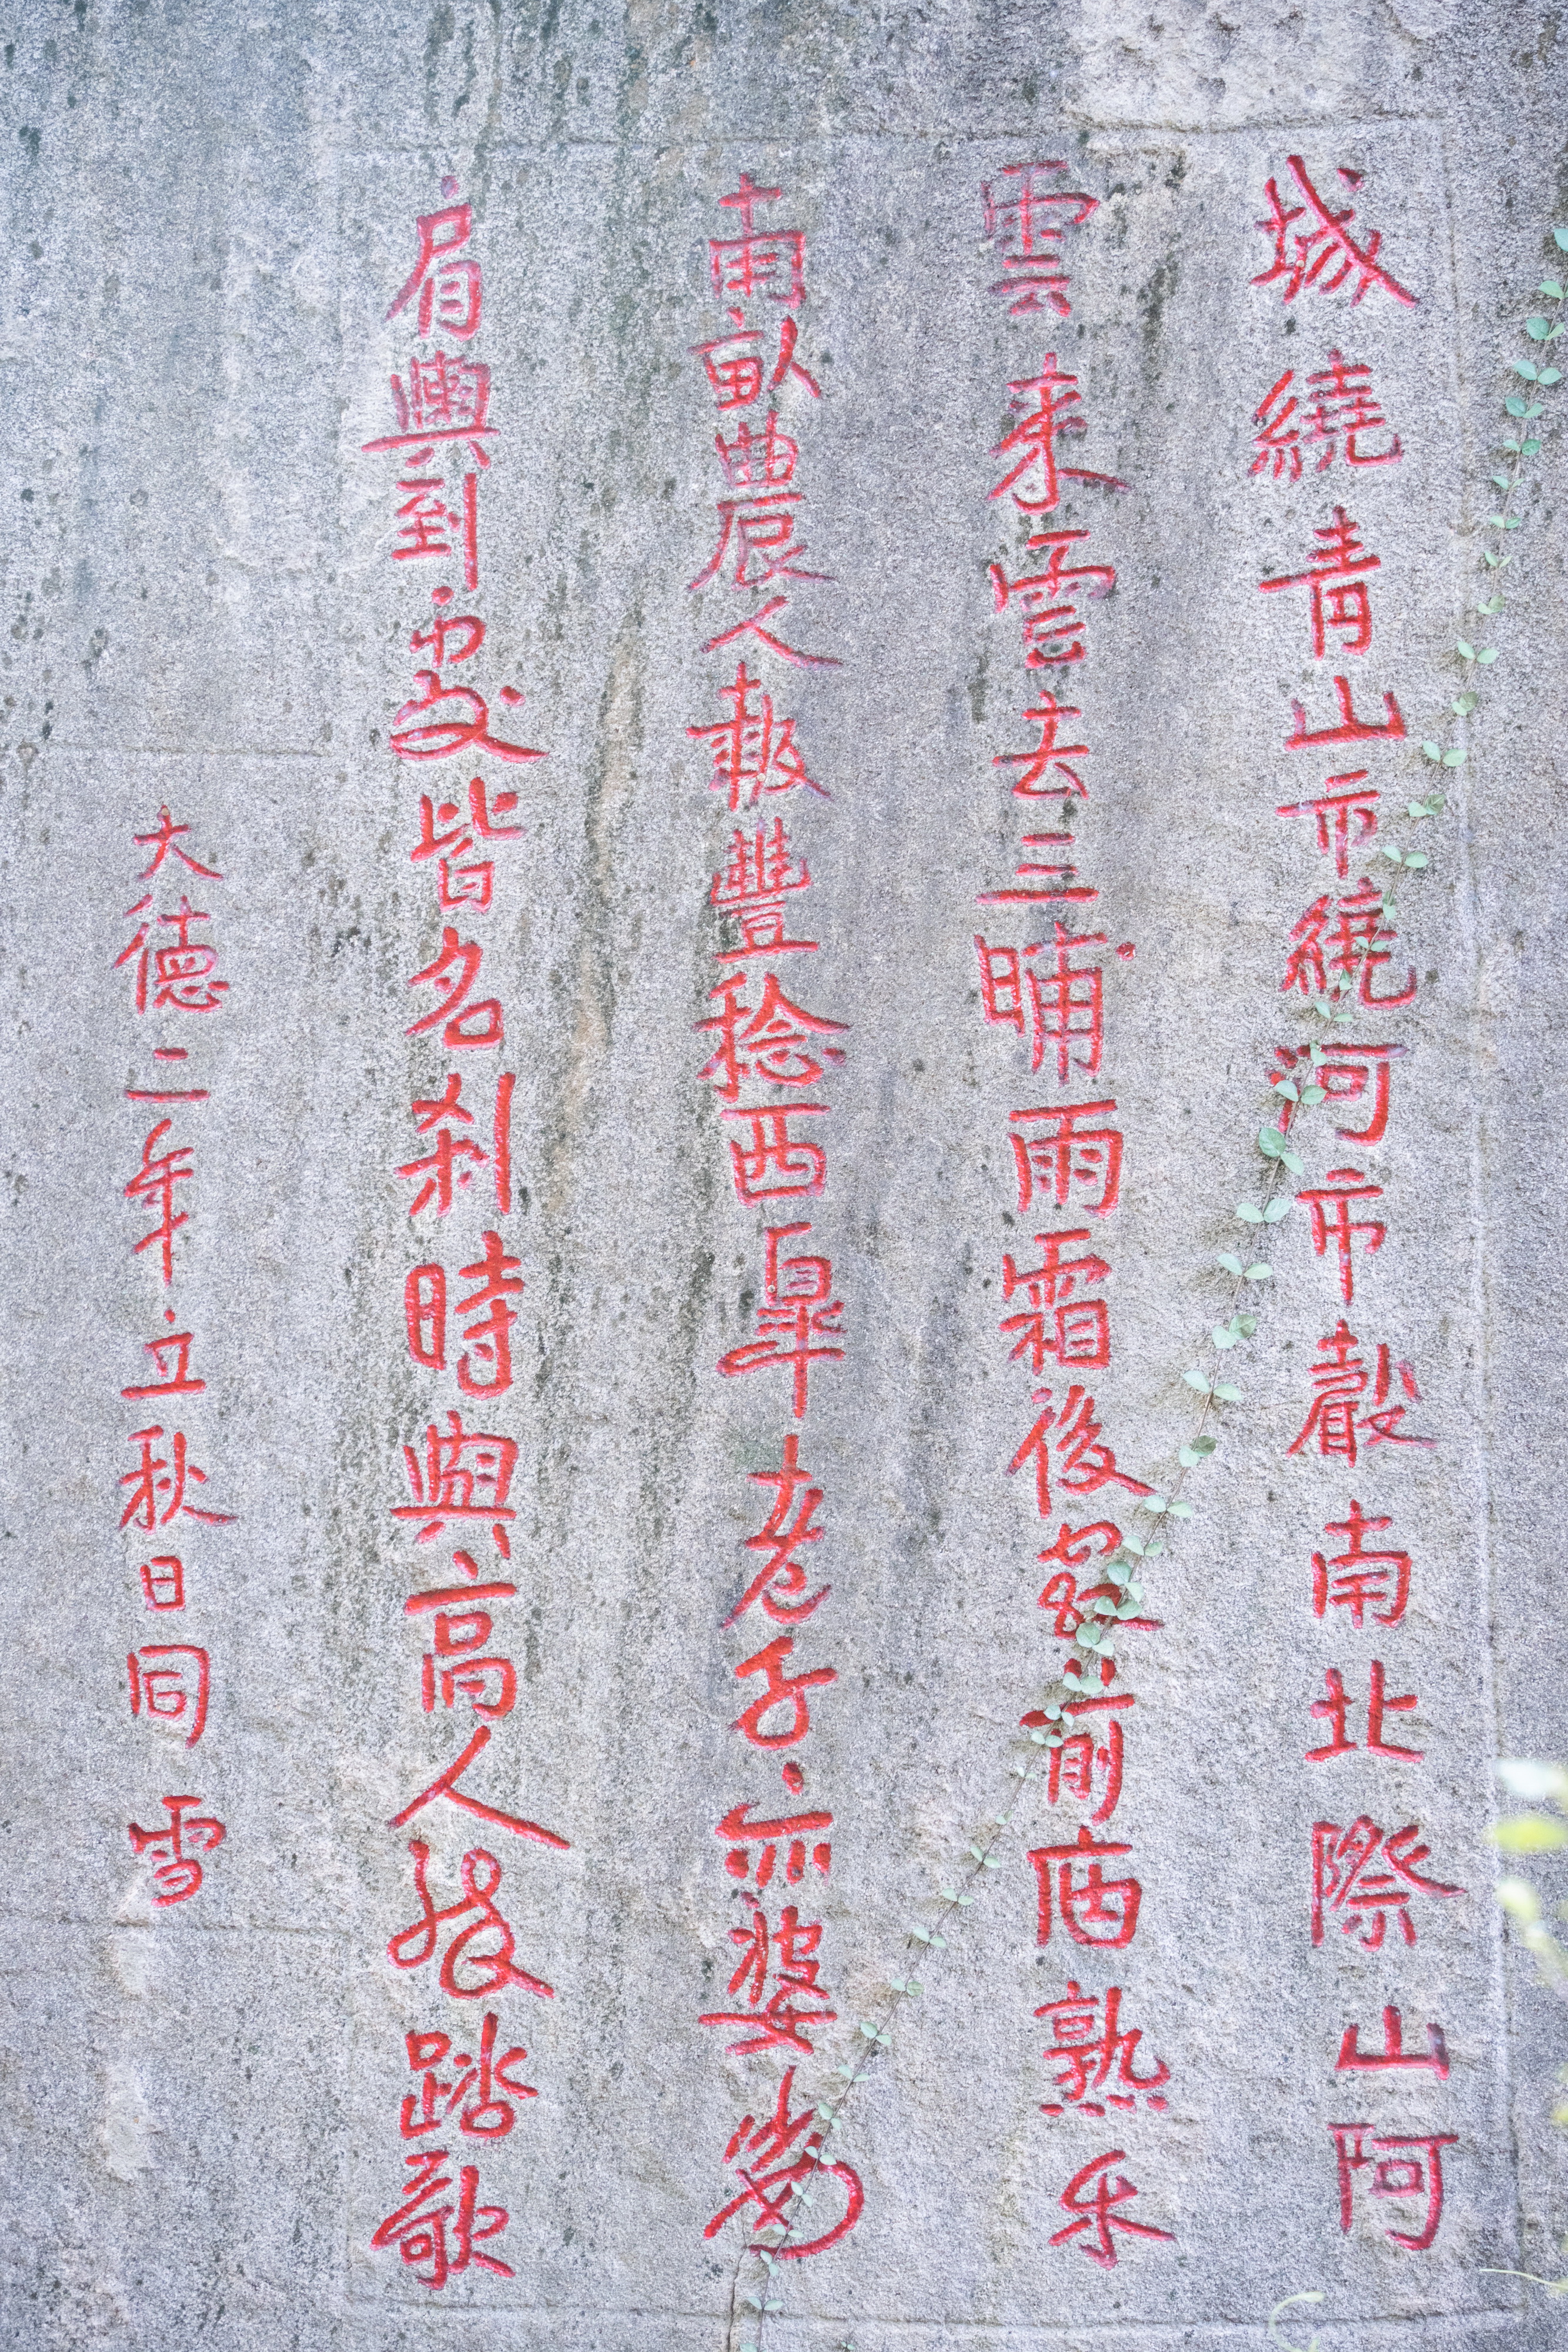 城繞青山市繞河市聲南北際山阿
雲来雲去三晡雨霜後霜前兩熟禾
南畝農人報豐稔西皐老子亦婆娑
肩輿到處皆名刹時與高人發踏歌
大德二年立秋日同雪